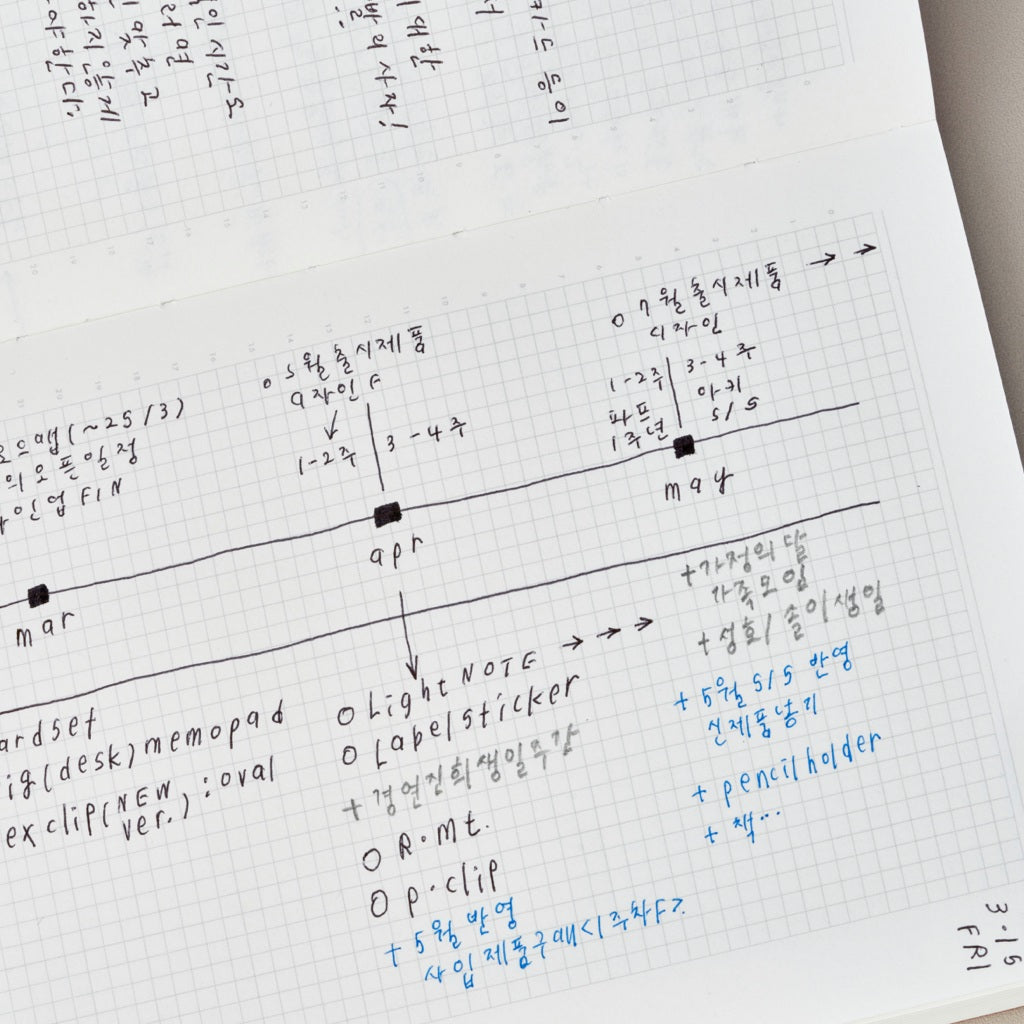 5월 출시제품
디자인 F
1-2주
3-4주
7월 출시제품
디자인
1-2주
3-4주
파프
1주년
아키
S/S
(~25/3)
의 오픈일정
인업 FIN
mar
apr
may
ardset
ig(desk)memopad
ex clip(NEW ver.) : oval
Light NOTE
Label sticker
+ 경연진희생일주간
R·mt.
p·clip
+ 5월 반영
사입제품구매
+ 가정의 달
가족모임
+ 성호/솔이생일
+ 5월 S/S 반영
신제품넣기
+ pencil holder
+ 책...
3.15
FRI
야한다.
하지 않게
맞추고
려면
인 시간으
발 역사자!
대한
카드 등이